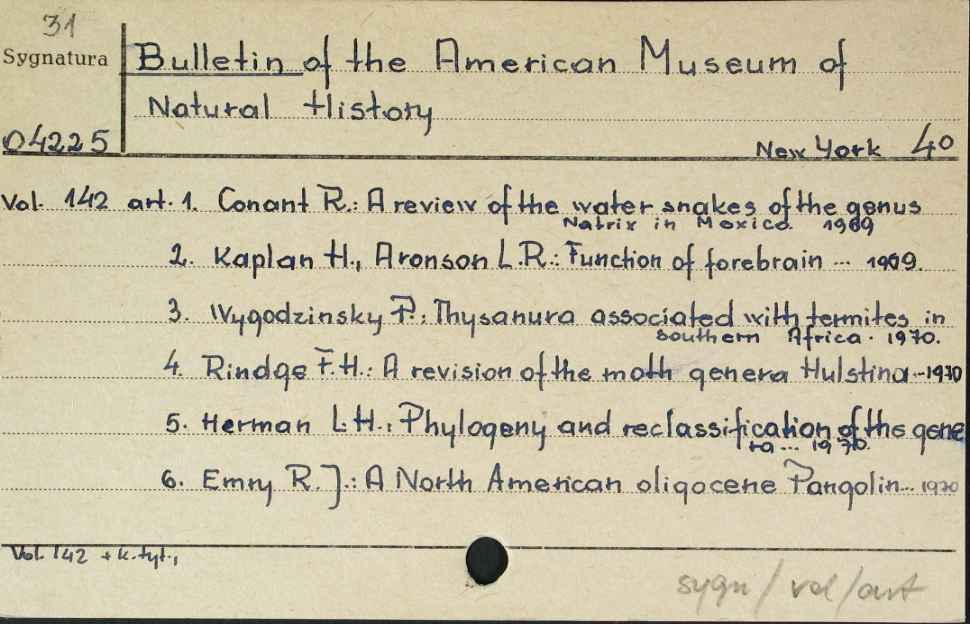 31
Sygnatura
Bulletin of the American Museum of
Natural History
04225
New York 4°
Vol. 142 art. 1. Conant R.: A review of the water snakes of the genus
Natrix in Mexico. 1969
2. Kaplan H., Aronson L.R.: Function of forebrain ... 1969.
3. Wygodzinsky P.: Thysanura associated with termites in
southern Africa. 1970.
4. Rindge F.H.: A revision of the moth genera Hulstina...1970
5. Herman L.H.: Phylogeny and reclassification of the gene
ra ... 1970.
6. Emry R.J.: A North American oligocene Pangolin... 1970
Vol. 142 + k.tyt.,
sygn/vol/art